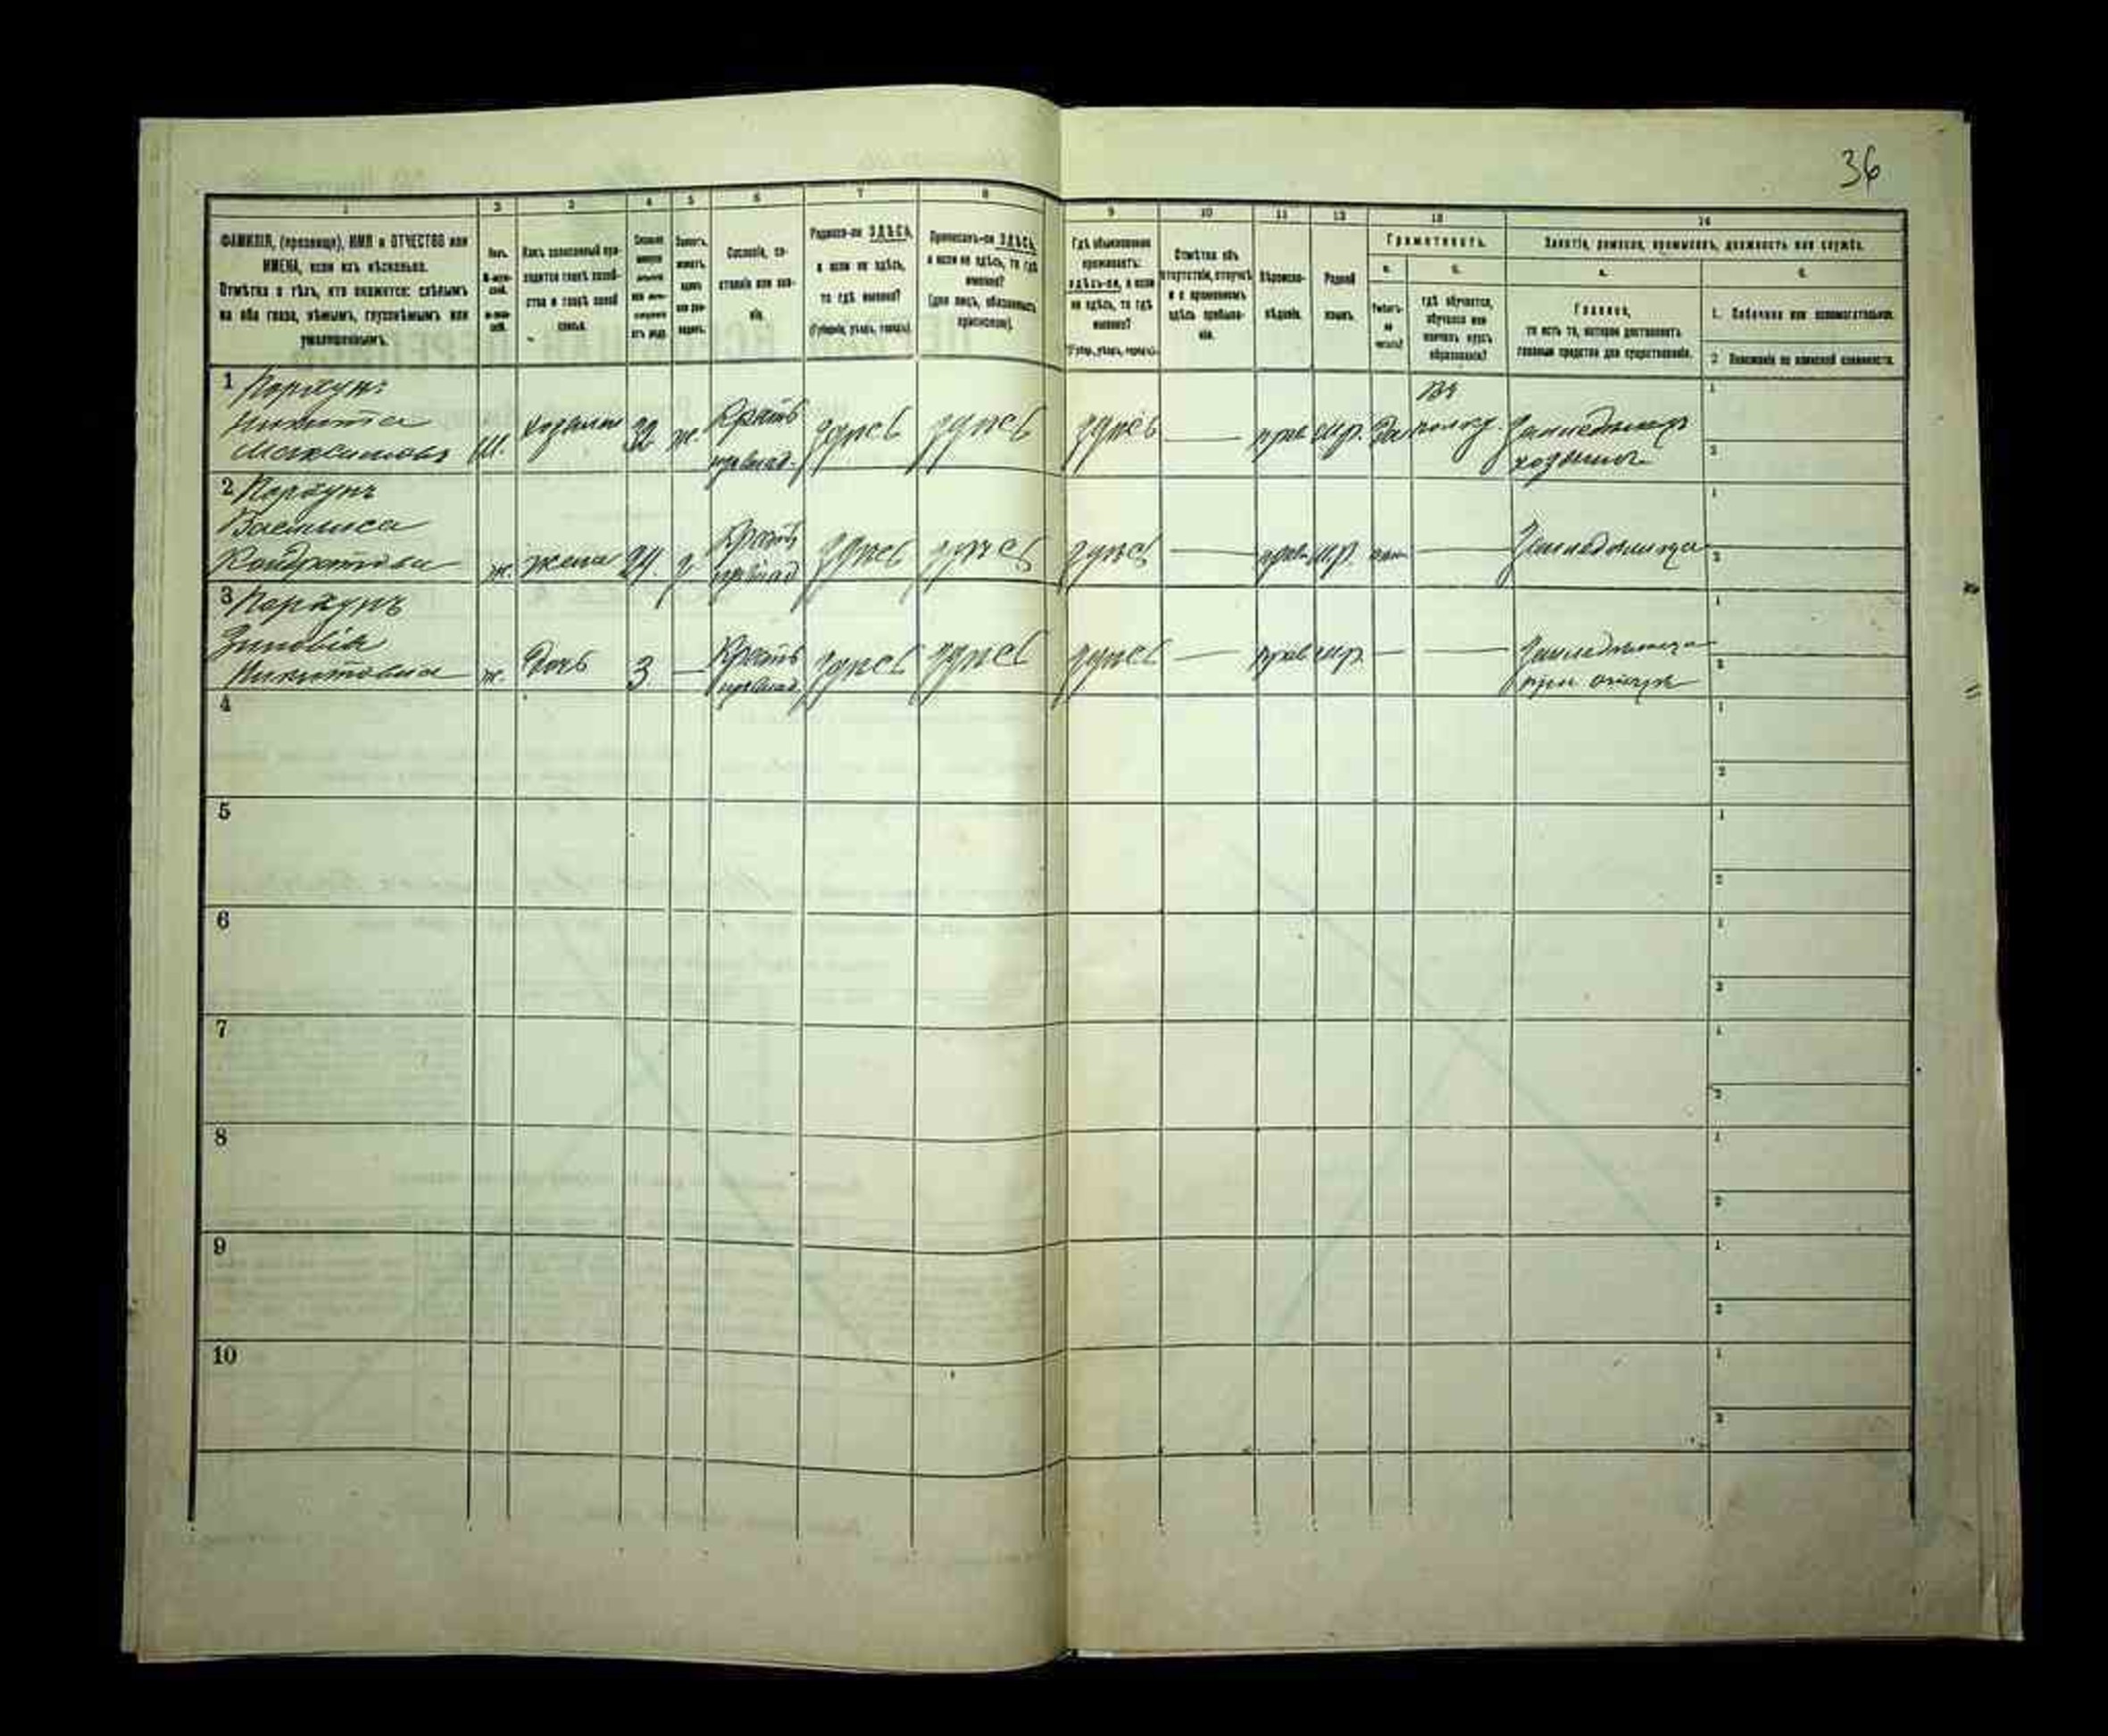 36
1 2 3 4 5 6 7 8 9 10 11 12 13 14
ФАМИЛІЯ, (прозвище), ИМЯ и ОТЧЕСТВО или
ИМЕНА, если ихъ нѣсколько.
Отмѣтка о тѣхъ, кто окажется: слѣпымъ
на оба глаза, нѣмымъ, глухонѣмымъ или
умалишеннымъ.
Полъ.
Какъ записанный при-
ходится главѣ хозяй-
ства и главѣ своей
семьи.
Сословіе, со-
стояніе или зва-
ніе.
Родился-ли ЗДѢСЬ,
а если не здѣсь,
то гдѣ именно?
(Губернія, уѣздъ, городъ).
Приписанъ-ли ЗДѢСЬ,
а если не здѣсь, то гдѣ
именно?
(для лицъ, обязанныхъ
припискою).
Гдѣ обыкновенно
проживаетъ:
здѣсь-ли, а если
не здѣсь, то гдѣ
именно?
(Губер., уѣздъ, городъ).
Отмѣтка объ
отсутствіи, отлучкѣ
и о временномъ
здѣсь пребыва-
ніи.
Вѣроиспо-
вѣданіе.
Родной
языкъ.
Грамотность.
а.
Умѣетъ-
ли
читать?
б.
гдѣ обучается,
обучался или
кончилъ курсъ
образованія?
Занятіе, ремесло, промыселъ, должность или служба.
а.
Главное,
то есть то, которое доставляетъ
главныя средства для существованія.
б.
1. Побочное или вспомогательное.
2. Положеніе по воинской повинности.
1
Никита
Максимовъ
М. хозяинъ 32 ж. Крест. здѣсь здѣсь здѣсь — прав. мр. Да Земледѣлецъ
хозяинъ
1
2
2
Василиса
Кондратова
ж. жена 24. з. Крест. здѣсь здѣсь здѣсь — прав. мр. — Земледѣлица
1
2
3
Зиновія
Никитовна
ж. дочь 3. — Крест. здѣсь здѣсь здѣсь — прав. мр. — — Земледѣлица
при отцѣ
1
2
4
1
2
5
1
2
6
1
2
7
1
2
8
1
2
9
1
2
10
1
2